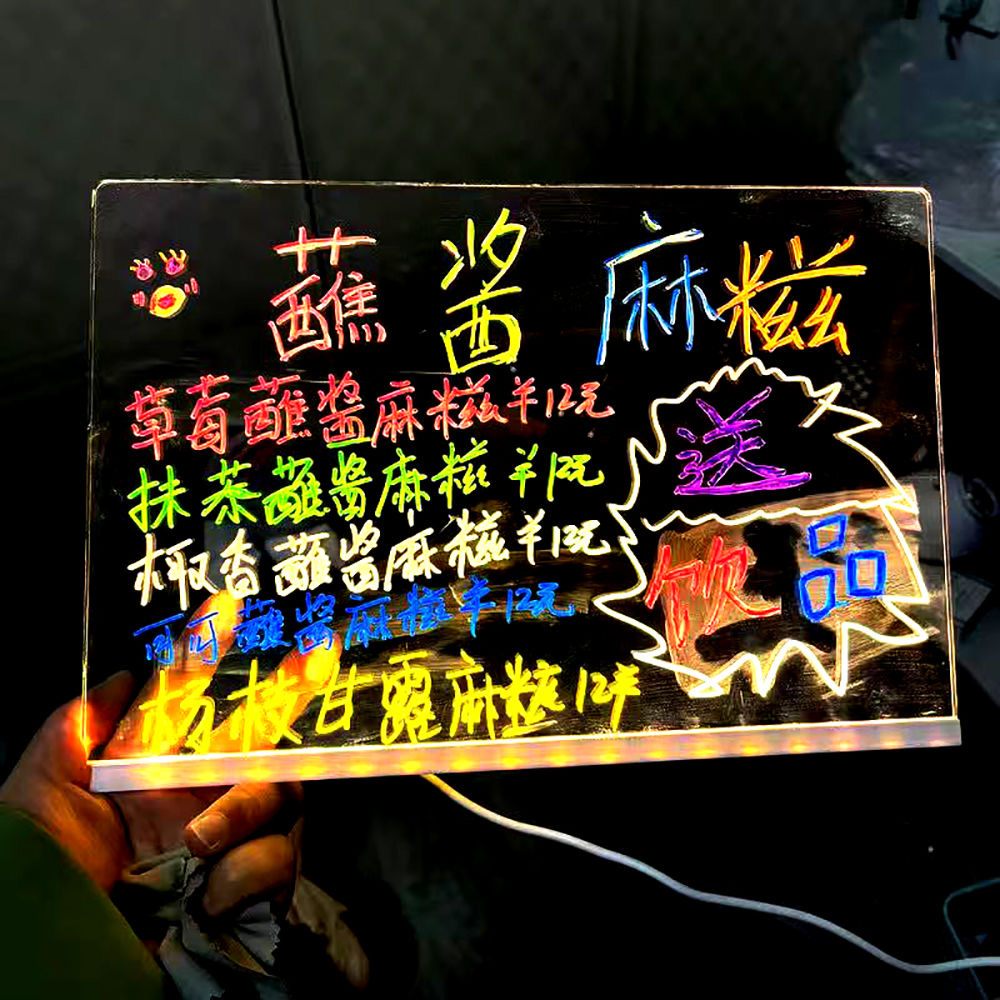 蘸酱麻糍
草莓蘸酱麻糍羊12元
抹茶蘸酱麻糍羊12元
椰香蘸酱麻糍羊12元
可可蘸酱麻糍羊12元
杨枝甘露麻糍12羊
送
饮品